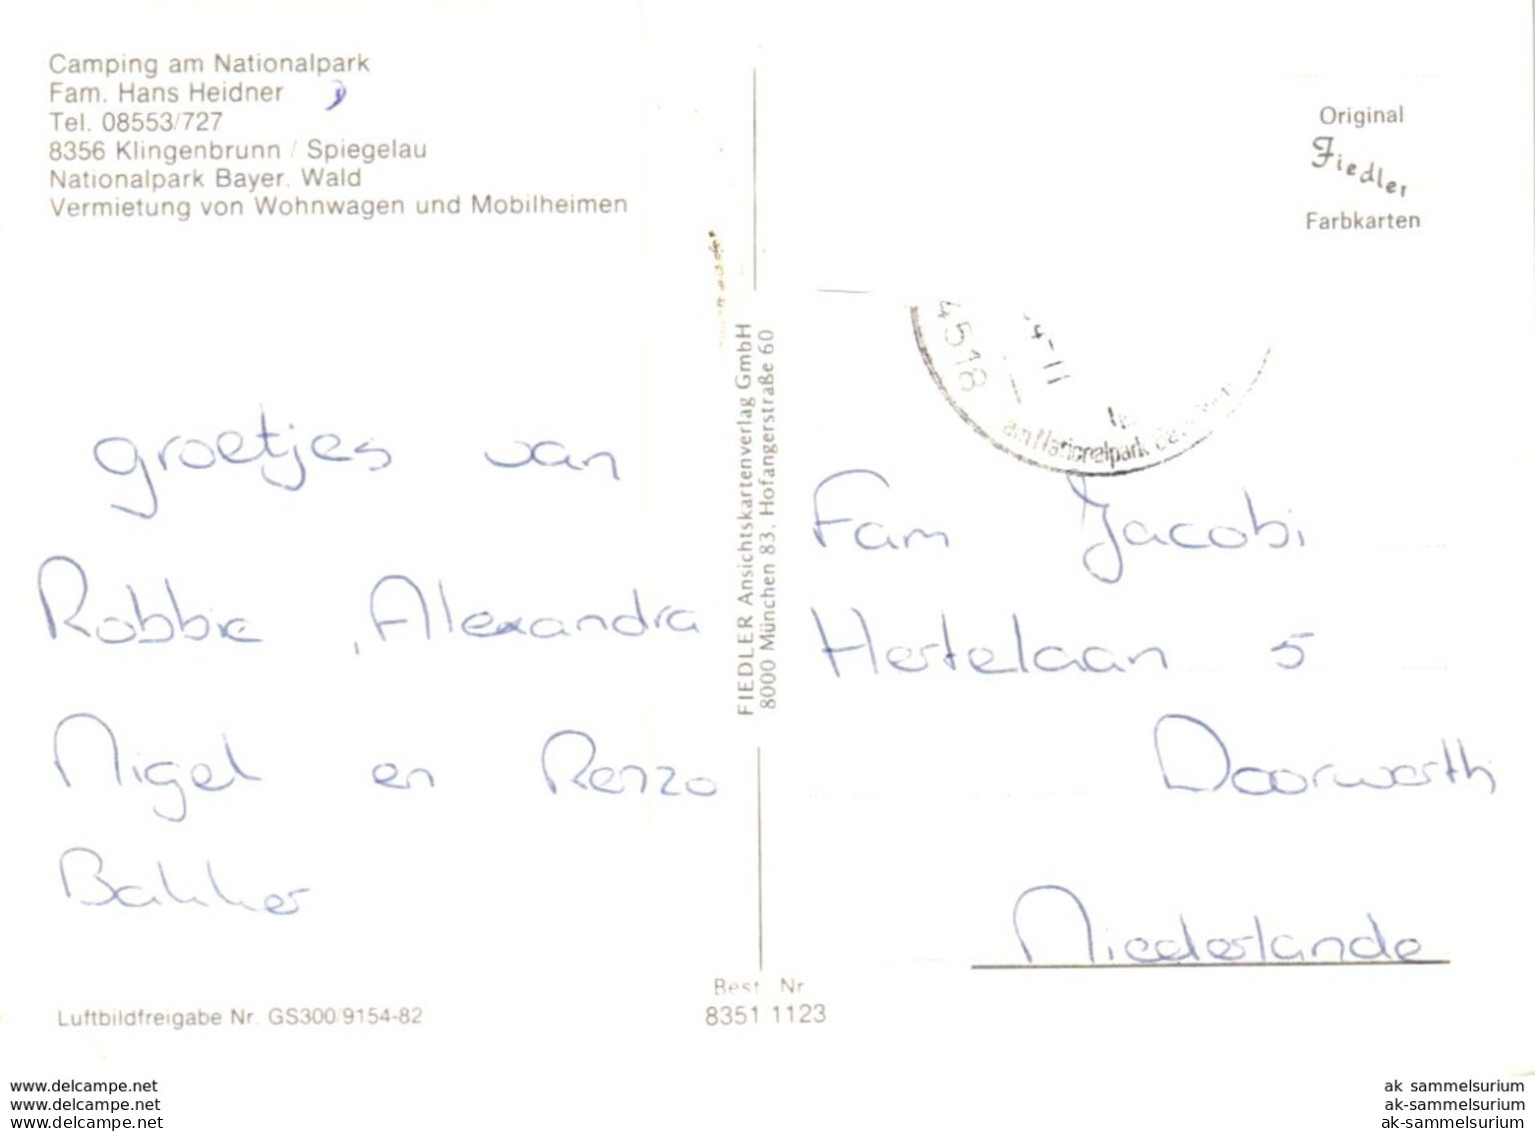 Camping am Nationalpark
Fam. Hans Heidner
Tel. 08553/727
8356 Klingenbrunn / Spiegelau
Nationalpark Bayer. Wald
Vermietung von Wohnwagen und Mobilheimen
groetjes van
Robbie , Alexandra
Nigel en Renzo
Bakker
Luftbildfreigabe Nr. GS300/9154-82
FIEDLER Ansichtskartenverlag GmbH
8000 München 83, Hofangerstraße 60
Best Nr
8351/1123
Original
Fiedler
Farbkarten
4518
4-11
am Nationalpark
Fam Jacobi
Hertelaan 5
Doorwerth
Niederlande
www.delcampe.net
www.delcampe.net
www.delcampe.net
ak_sammelsurium
ak-sammelsurium
ak-sammelsurium